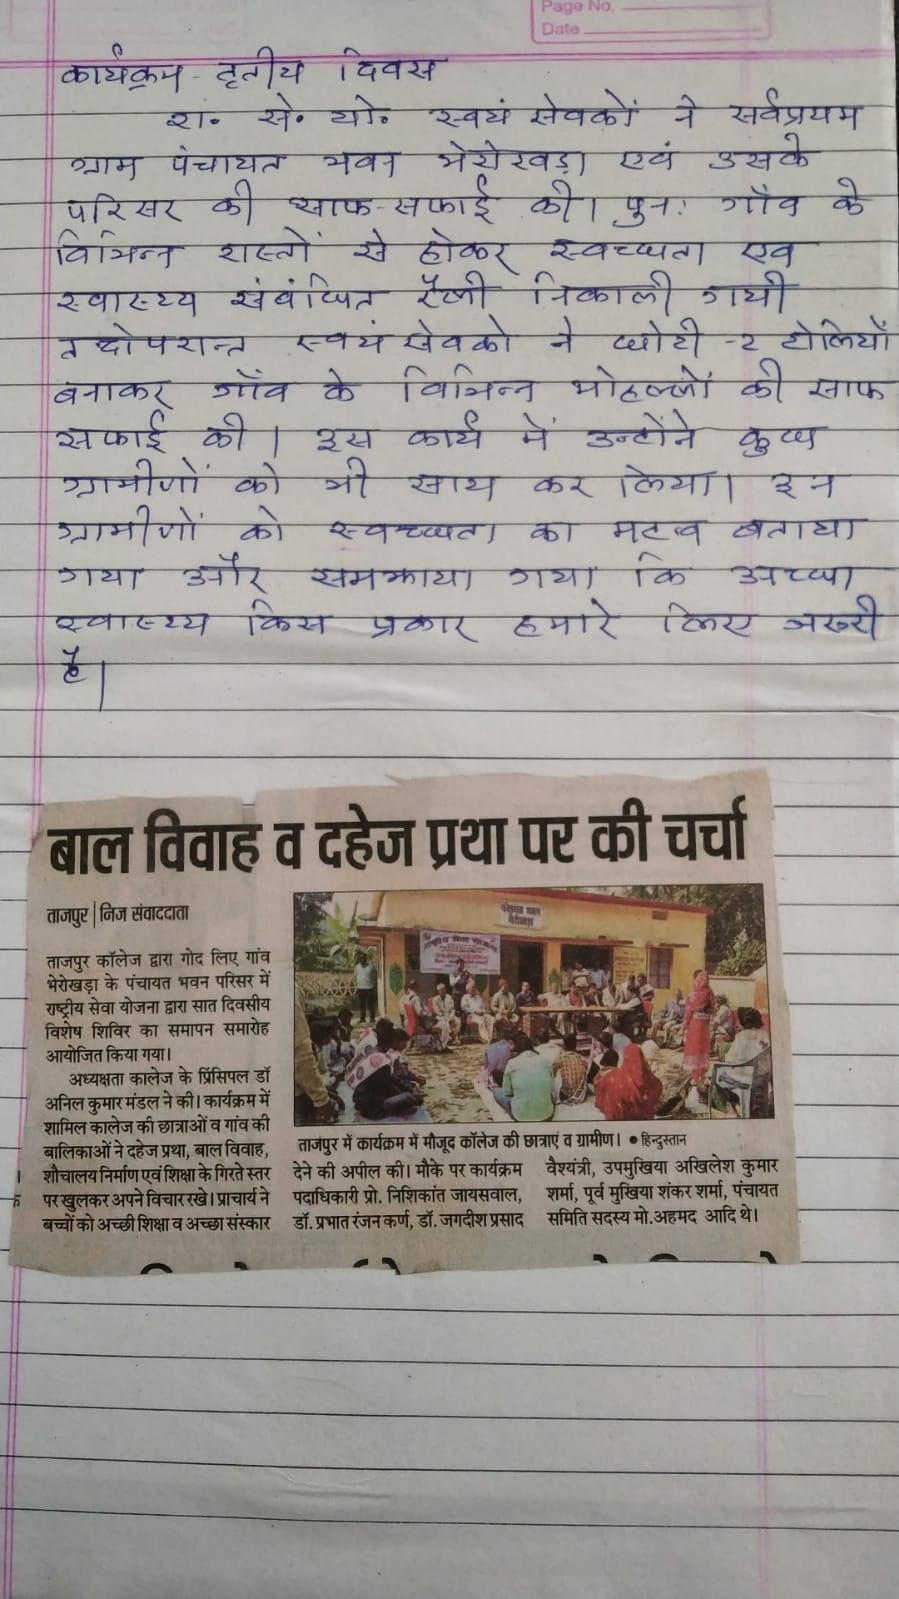 Page No.
Date
कार्यक्रम - तृतीय दिवस
रा॰ से॰ यो॰ स्वयं सेवकों ने सर्वप्रथम
ग्राम पंचायत भवन भेरोखड़ा एवं उसके
परिसर की साफ-सफाई की। पुनः गाँव के
विभिन्न रास्तों से होकर स्वच्छता एव
स्वास्थ्य संबंधित रैली निकाली गयी
तदोपरान्त स्वयं सेवको ने छोटी -२ टोलियाँ
बनाकर गाँव के विभिन्न मोहल्लों की साफ
सफाई की। इस कार्य में उन्होंने कुछ
ग्रामीणों को भी साथ कर लिया। इन
ग्रामीणों को स्वच्छता का महत्व बताया
गया और समझाया गया कि अच्छा
स्वास्थ्य किस प्रकार हमारे लिए जरूरी
है।
बाल विवाह व दहेज प्रथा पर की चर्चा
ताजपुर | निज संवाददाता
ताजपुर कॉलेज द्वारा गोद लिए गांव
भेरोखड़ा के पंचायत भवन परिसर में
राष्ट्रीय सेवा योजना द्वारा सात दिवसीय
विशेष शिविर का समापन समारोह
आयोजित किया गया।
अध्यक्षता कालेज के प्रिंसिपल डॉ
अनिल कुमार मंडल ने की। कार्यक्रम में
शामिल कालेज की छात्राओं व गांव की
बालिकाओं ने दहेज प्रथा, बाल विवाह,
शौचालय निर्माण एवं शिक्षा के गिरते स्तर
पर खुलकर अपने विचार रखे। प्राचार्य ने
बच्चों को अच्छी शिक्षा व अच्छा संस्कार
पंचायत भवन
राष्ट्रीय सेवा योजना
ताजपुर में कार्यक्रम में मौजूद कॉलेज की छात्राएं व ग्रामीण। ● हिन्दुस्तान
देने की अपील की। मौके पर कार्यक्रम
पदाधिकारी प्रो. निशिकांत जायसवाल,
डॉ. प्रभात रंजन कर्ण, डॉ. जगदीश प्रसाद
वैश्यंत्री, उपमुखिया अखिलेश कुमार
शर्मा, पूर्व मुखिया शंकर शर्मा, पंचायत
समिति सदस्य मो.अहमद आदि थे।